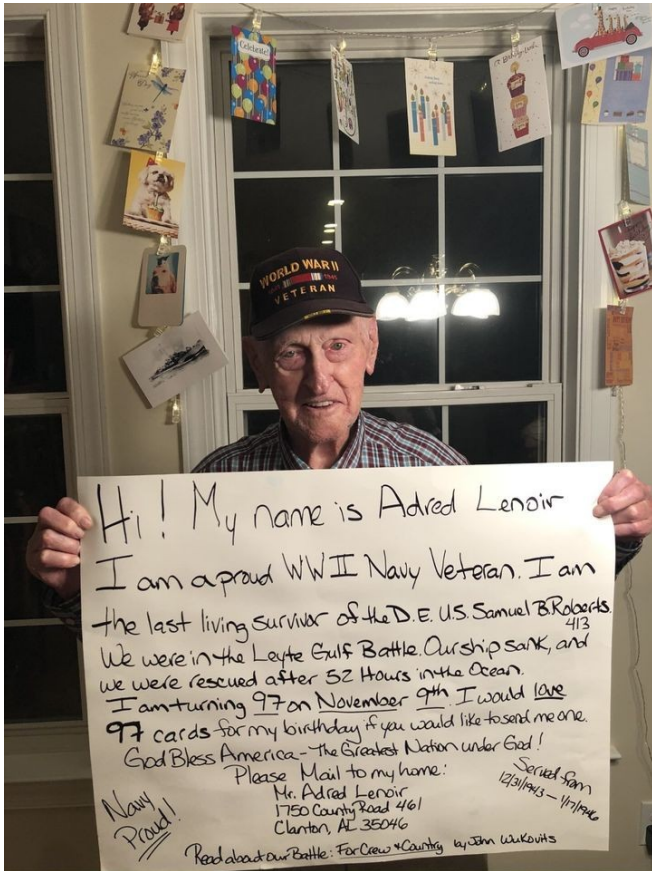 Celebrate!
WORLD WAR II
VETERAN
Hi! My name is Adred Lenoir
I am a proud WWII Navy Veteran. I am
the last living survivor of the D.E. U.S. Samuel B. Roberts.
413
We were in the Leyte Gulf Battle. Our ship sank, and
we were rescued after 52 Hours in the Ocean.
I am turning 97 on November 9th. I would love
97 cards for my birthday if you would like to send me one.
God Bless America - The Greatest Nation under God!
Please Mail to my home:
Mr. Adred Lenoir
1750 County Road 461
Clanton, AL 35046
Navy
Proud!
Served from
12/31/1943 - 1/17/1946
Read about our Battle: For Crew & Country by John Wukovits